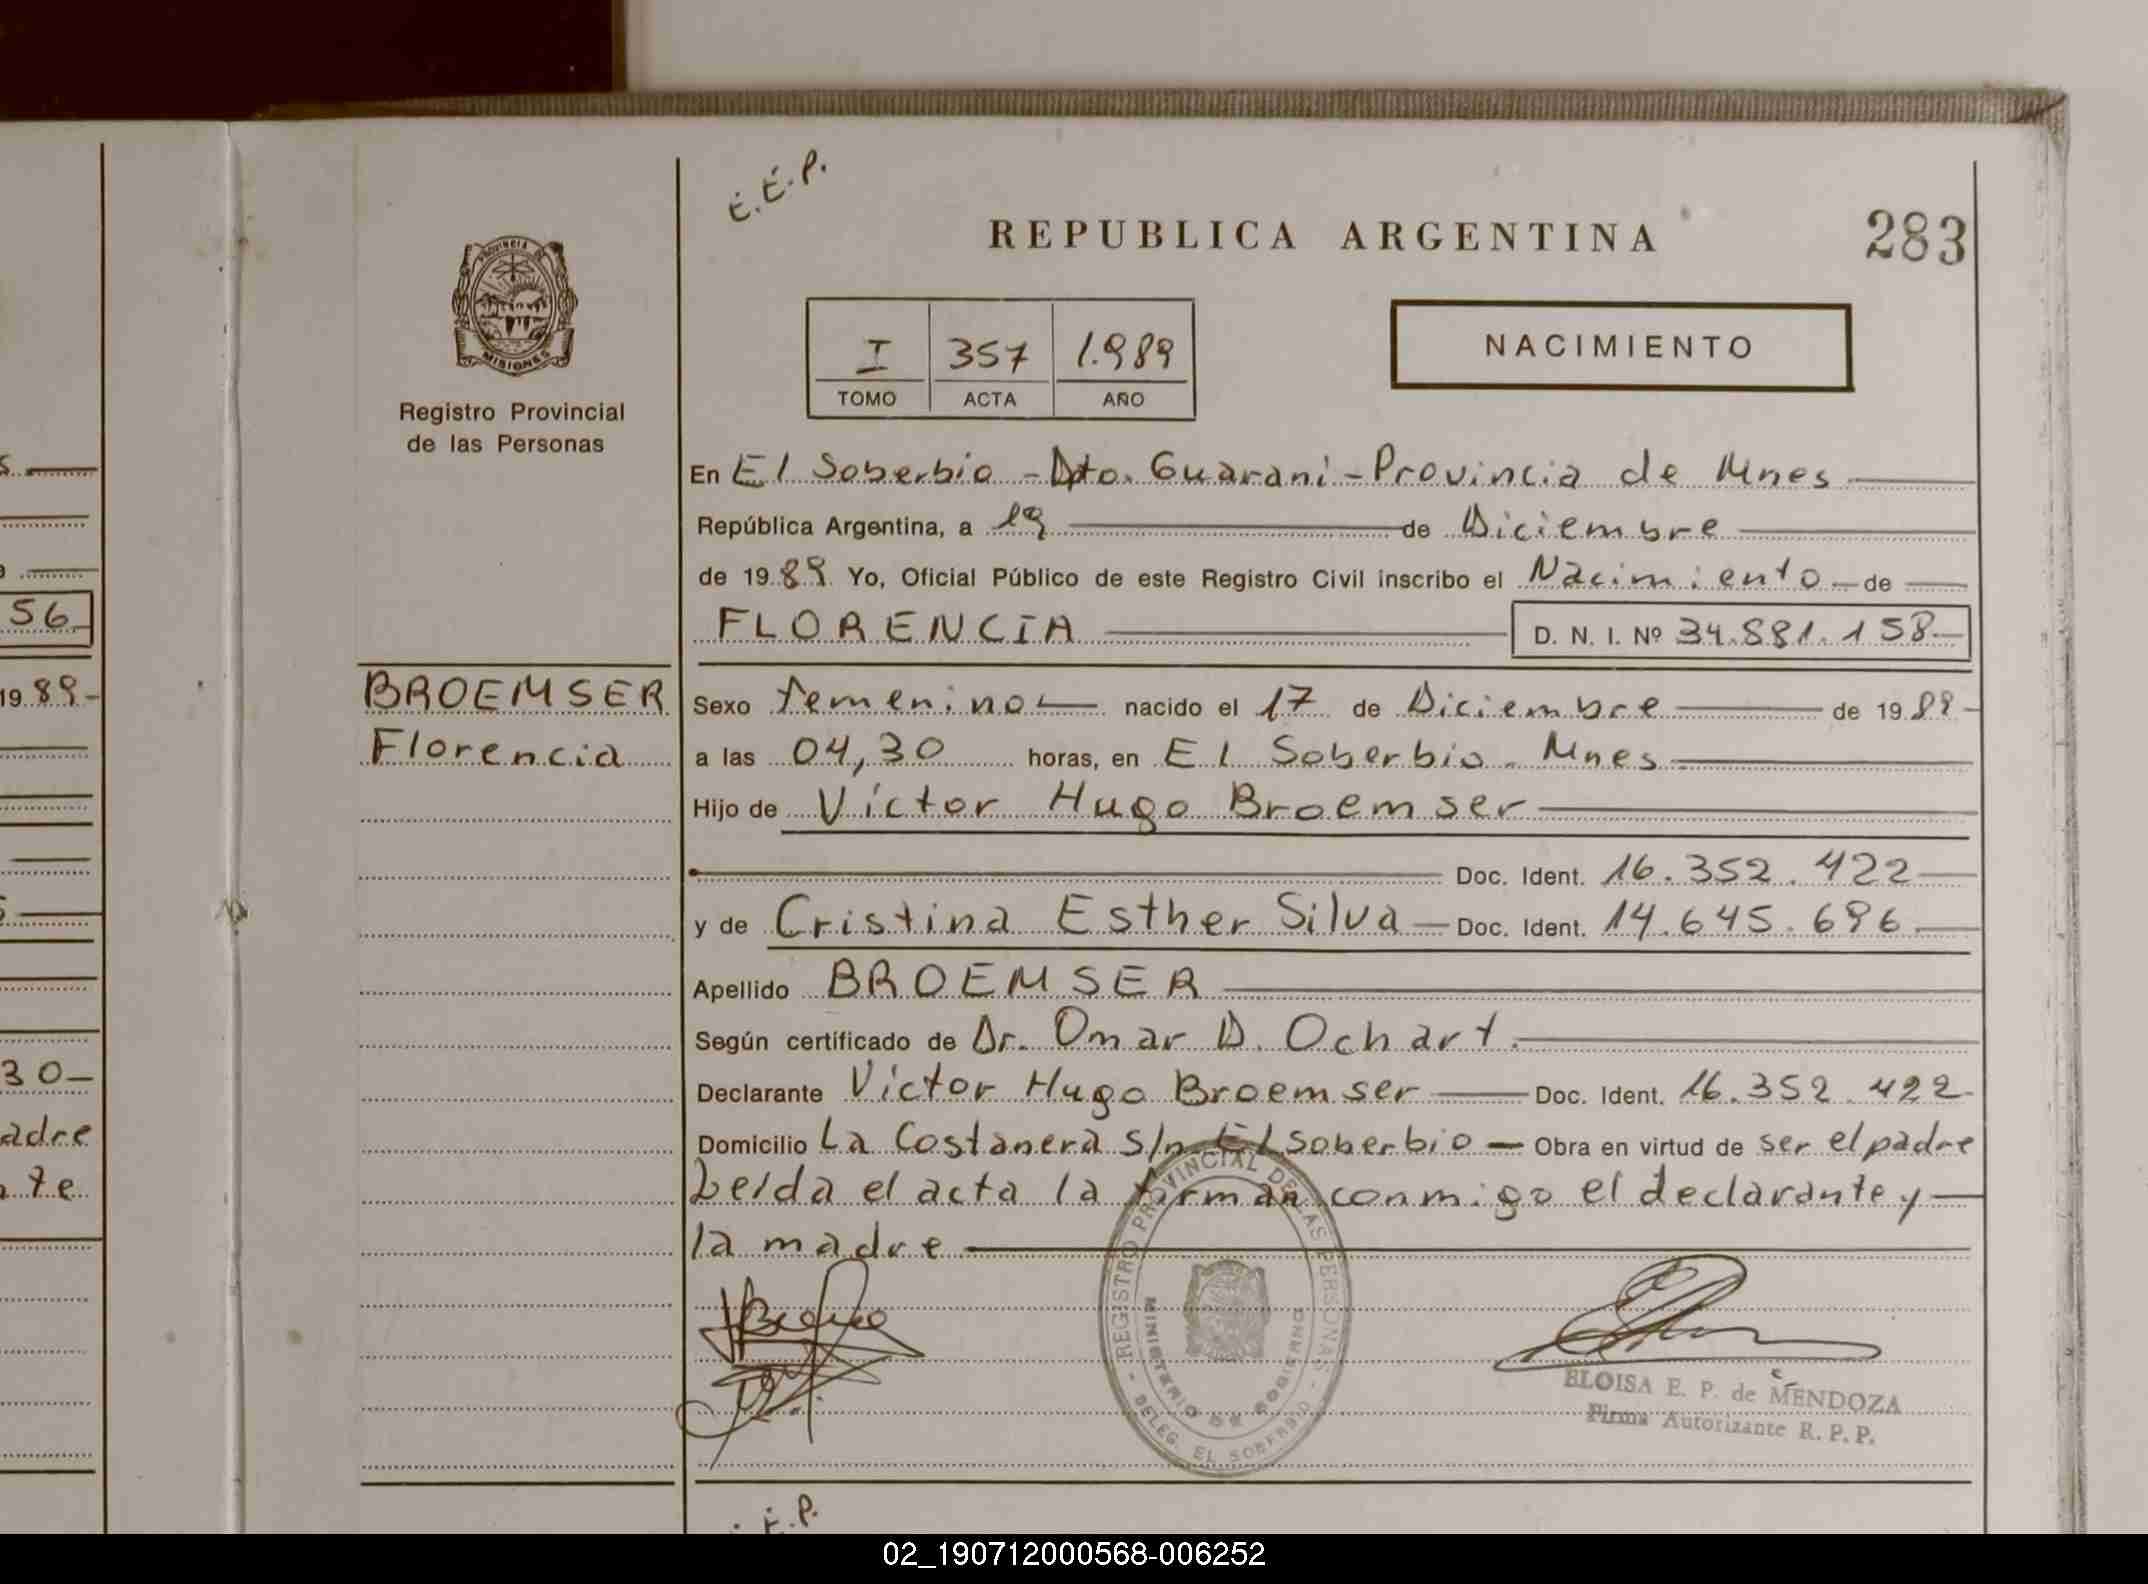 E.E.P.
REPUBLICA ARGENTINA
283
PROVINCIA DE
MISIONES
Registro Provincial
de las Personas
I 357 1.989
TOMO ACTA AÑO
NACIMIENTO
En El Soberbio - Dto. Guaraní - Provincia de Mnes
República Argentina, a 19 de Diciembre
de 19 89 Yo, Oficial Público de este Registro Civil inscribo el Nacimiento de
FLORENCIA D. N. I. Nº 34.881.158
BROEMSER
Florencia
Sexo femenino nacido el 17 de Diciembre de 19 89
a las 04,30 horas, en El Soberbio - Mnes
Hijo de Víctor Hugo Broemser
Doc. Ident. 16.352.422
y de Cristina Esther Silva Doc. Ident. 14.645.696
Apellido BROEMSER
Según certificado de Dr. Omar D. Ochart.
Declarante Víctor Hugo Broemser Doc. Ident. 16.352.422
Domicilio La Costanera S/n El Soberbio Obra en virtud de ser el padre
Leída el acta la firman conmigo el declarante y
la madre
REGISTRO PROVINCIAL DE LAS PERSONAS
MINISTERIO DE GOBIERNO
DELEG. EL SOBERBIO
ELOISA E. P. de MENDOZA
Firma Autorizante R. P. P.
E.P.
56
19 89-
30-
adre
te
02_190712000568-006252